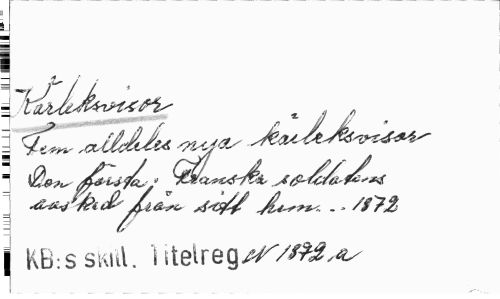 Kärleksvisor
Fem alldeles nya kärleksvisor
Den första: Franska soldatens
avsked från sitt hem... 1872
KB:s skill. Titelreg N 1872 a